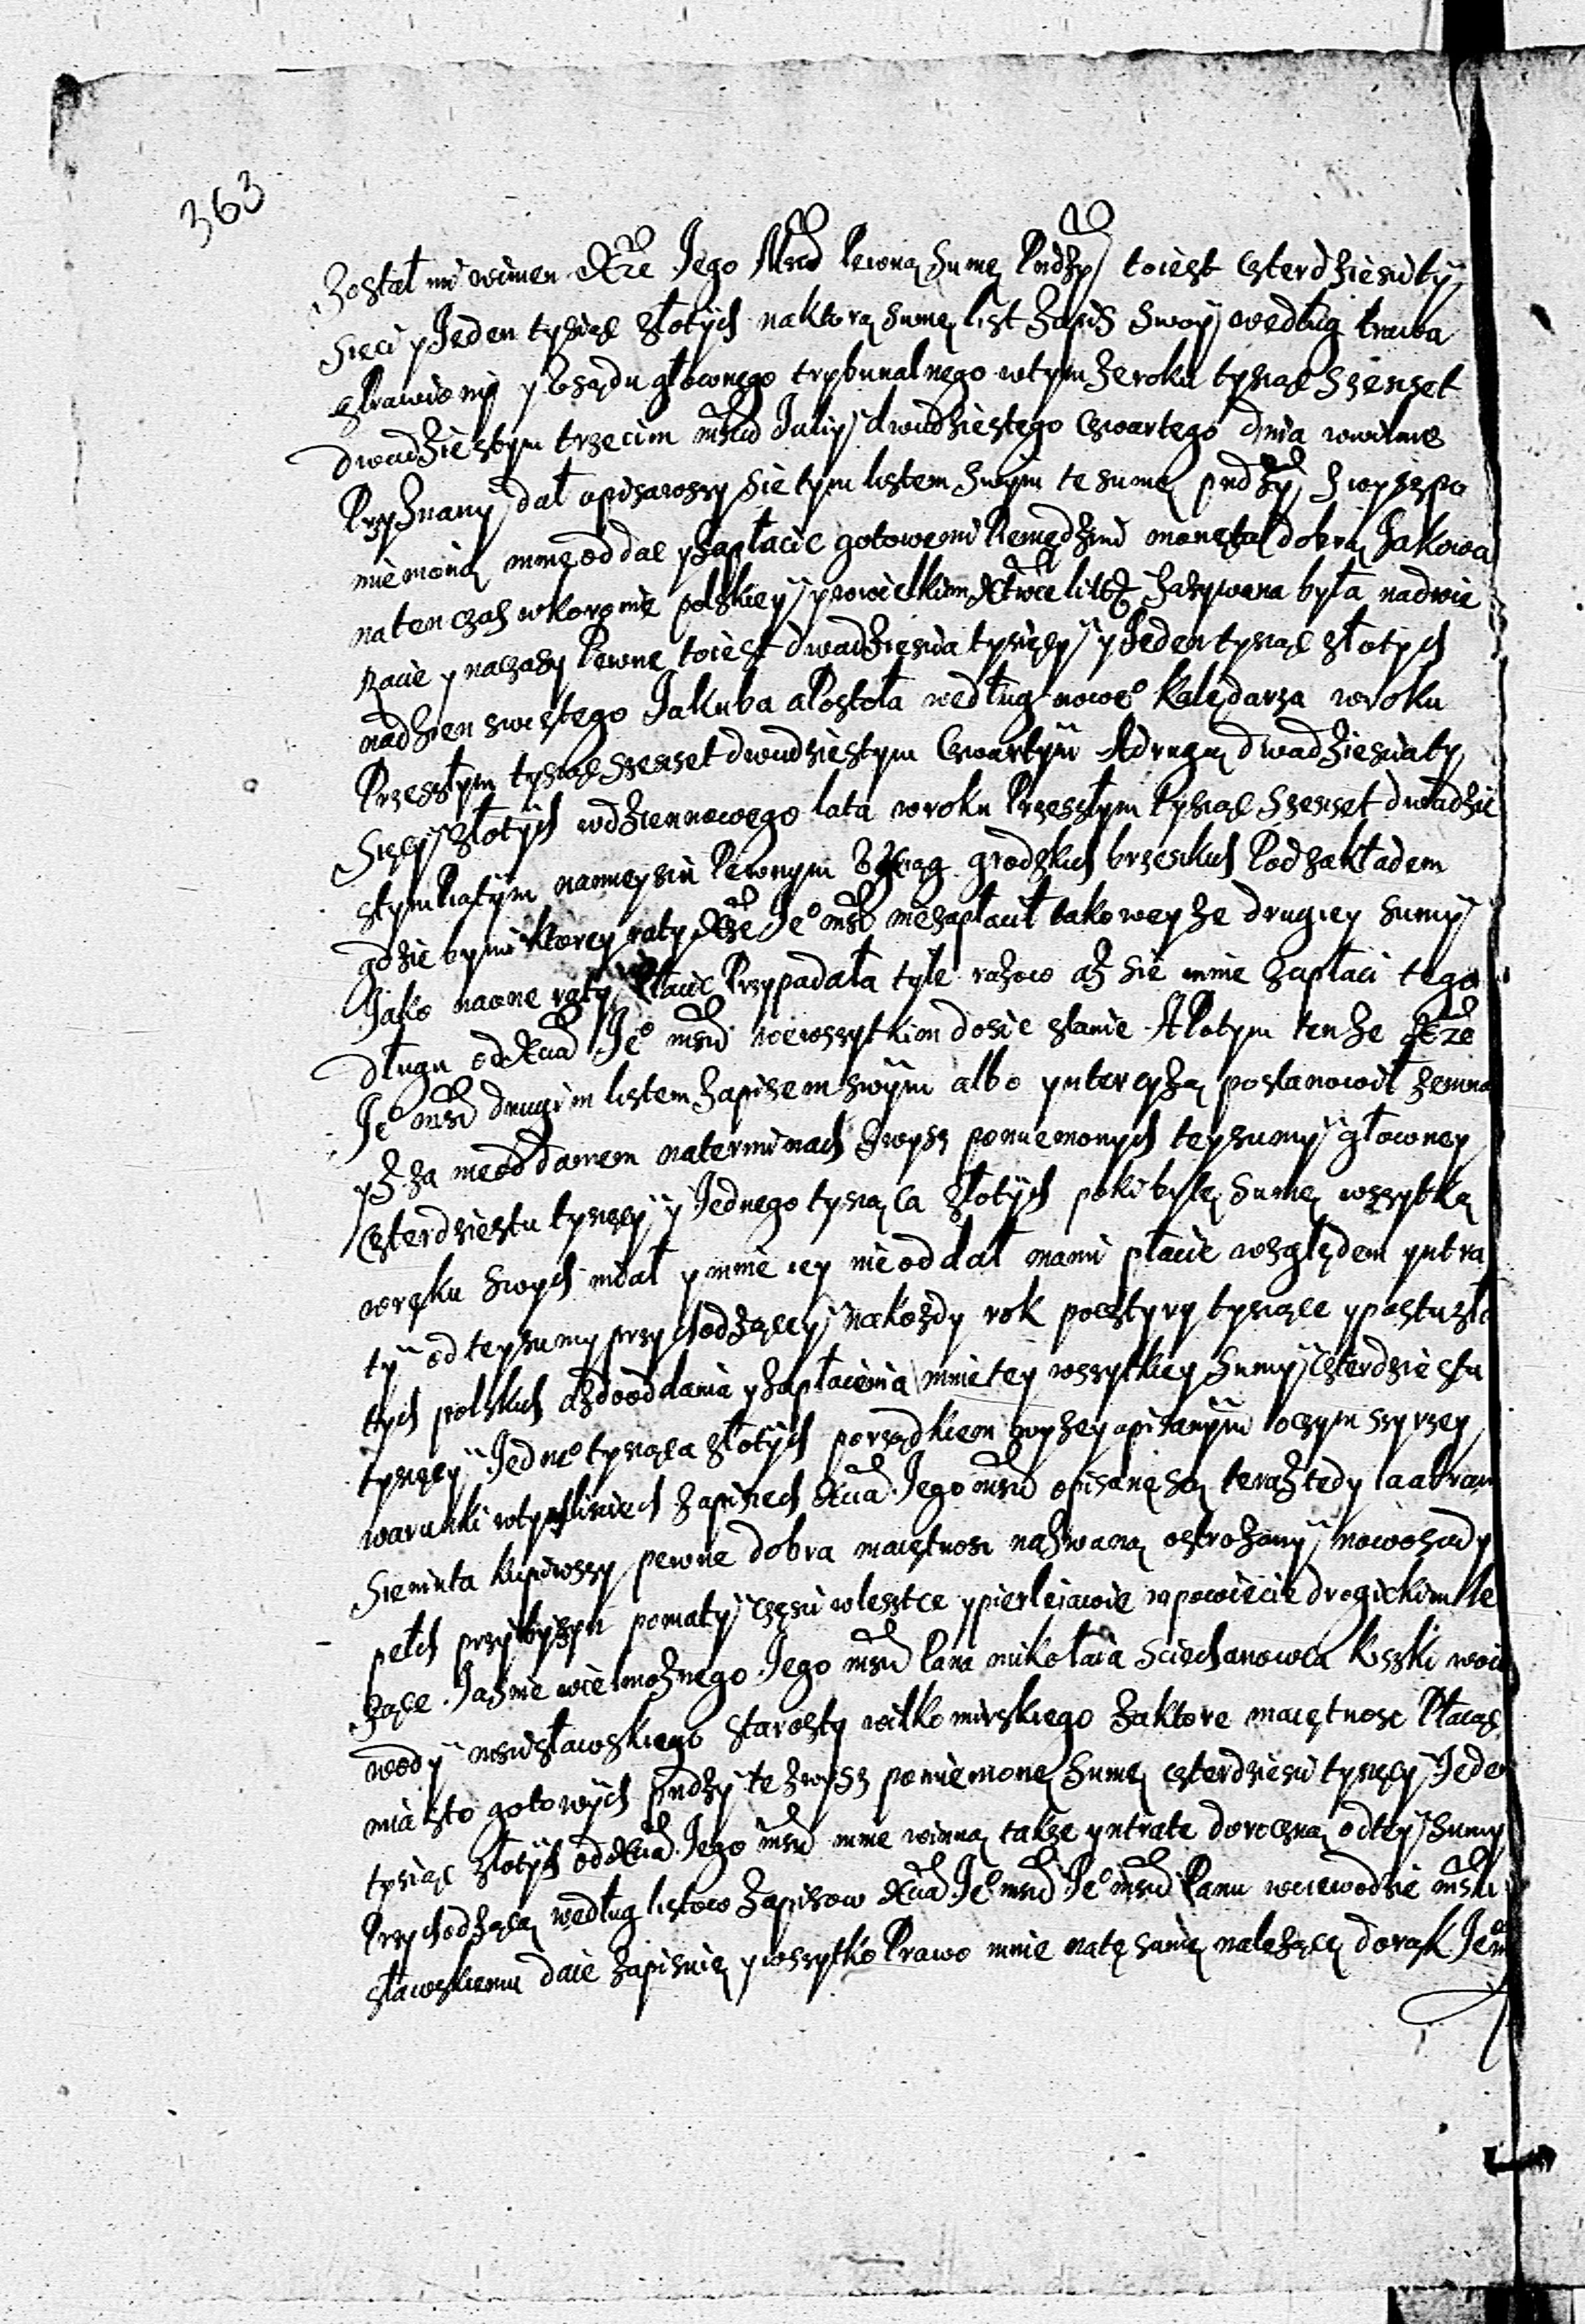 363
Został mi winien Xże Jego Mść Pewną Sumę Pndzy toiest czterdziesci ty
sięci y Jeden tysiąc złotych naktorą sumę list zapis swoy według prawa
sprawiony y Usądu głownego trybunalnego wtym że roku tysiąc szeset
dwudziestym trzecim mśca Juliy dwudziestego czwartego dnia wwilnie
Przyznany dał opisawszy sie tym listem swym te sumę pndzy zwyszpo
mienioną mnie oddac y zapłacic gotowemi Pieniędzmi monetą dobrą Jakowa
naten czas wkoronie polskiey y wwielkim Xtwie litt zazywana była nadwie
Racie y naczasy Pewne toiest dwadziescia tysięcy y Jeden tysiąc złotych
nadzien swiętego Jakuba apostoła według nowe° kalędarza wroku
Przeszłym tysiąc szeset dwudziestym czwartym A drugą dwadziescia ty
Sięcy złotych wdzien nowego lata wroku Przeszłym tysiąc szeset dwudzie
stym Piątym namieyscu Pewnym Uxiąg grodzkich brzeskich Podzakładem
gdzie bymi ktorey raty Xże Je° mść niezapłacił takoweyże drugiey sumy
Jako naone raty Płacic Przypadała tyle razow aż sie mnie zapłaci tego
długu od Xcia Je° mści wewszytkim dosic stanie A Potym tenże Xże
Je° mść drugim listem zapisem swym albo yntercyzą postanowił zemną
yż za nieoddaniem naterminach zwysz pomienionych tey sumy głowney
czterdziestu tysięcy y Jednego tysiąca złotych poki by tę sumę wszytką
wręku swych miał y mnie iey nie oddał mami płacic względem yntra
ty od tey sumy przychodzącey nakożdy rok poctyry tysiące y postu zło
tych polskich azdooddania y zapłacenia mnie tey wszytkiey Sumy czterdziestu
tysięcy Jedne° tysiąca złotych porządkiem zwyzey opisanym oczym szyrzey
warunki wtych liściech zapisiech Xcia Jego mści opisane są teraz tedy ia abram
Sieniuta kupiwszy pewne dobra maiętnosc nazwaną ostrozany nowosady
pełch przybyszyn pomaty częsci wlesztce ypierleiawie wpowiecie drogickim le
zące Jasnie wielmożnego Jego mści Pana mikołaia Sciechanowca kiszki woie
wody mscisławskiego starosty wilkomirskiego zaktore maiętnosc Płacąc
miasto gotowych pndzy te zwysz pomienioną Sumę czterdziesci tysięcy Jeden
tysiąc złotych od Xcia Jego mści mnie winną także yntratę doroczną odtey sumy
Przychodzącą według listow zapisow Xcia Je° mści Je° mści Panu woiewodzie mści
sławskiemu daie zapisuię y wszytko Prawo mnie natę sumę należące dorąk Je° m